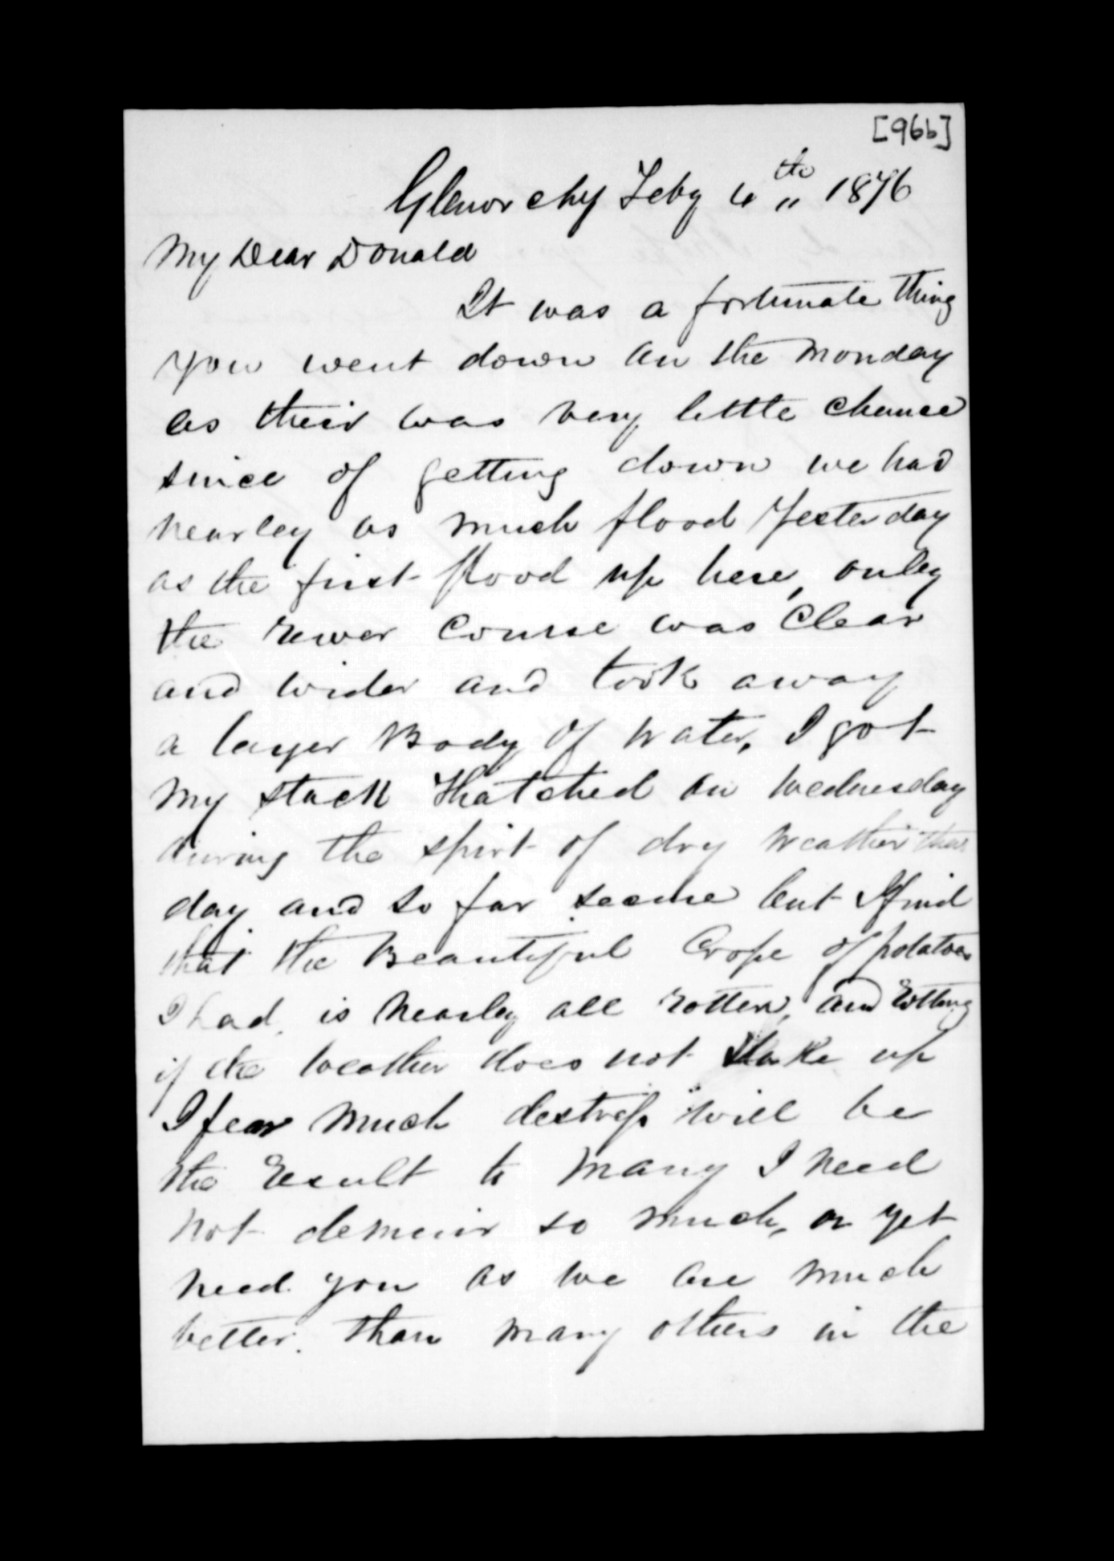 [966]
Glenorchy Feby 4th 1876
My Dear Donald
It was a fortunate thing
you went down on the Monday
as their was very little chance
since of getting down we had
nearley as much flood Yesterday
as the first flood up here, onley
the rewer Course was Clear
and wider and took away
a larger Body of water, I got
my stack Thatched on Wednesday
during the spirt of dry weather that
day and so far secure but I find
that the Beautiful Crope of potatoes
I had, is nearley all rotten, and Rotting
if the weather does not take up
I fear much destress will be
the result to many I need
not demuir so much, or yet
need you as we are much
better. than many others in the